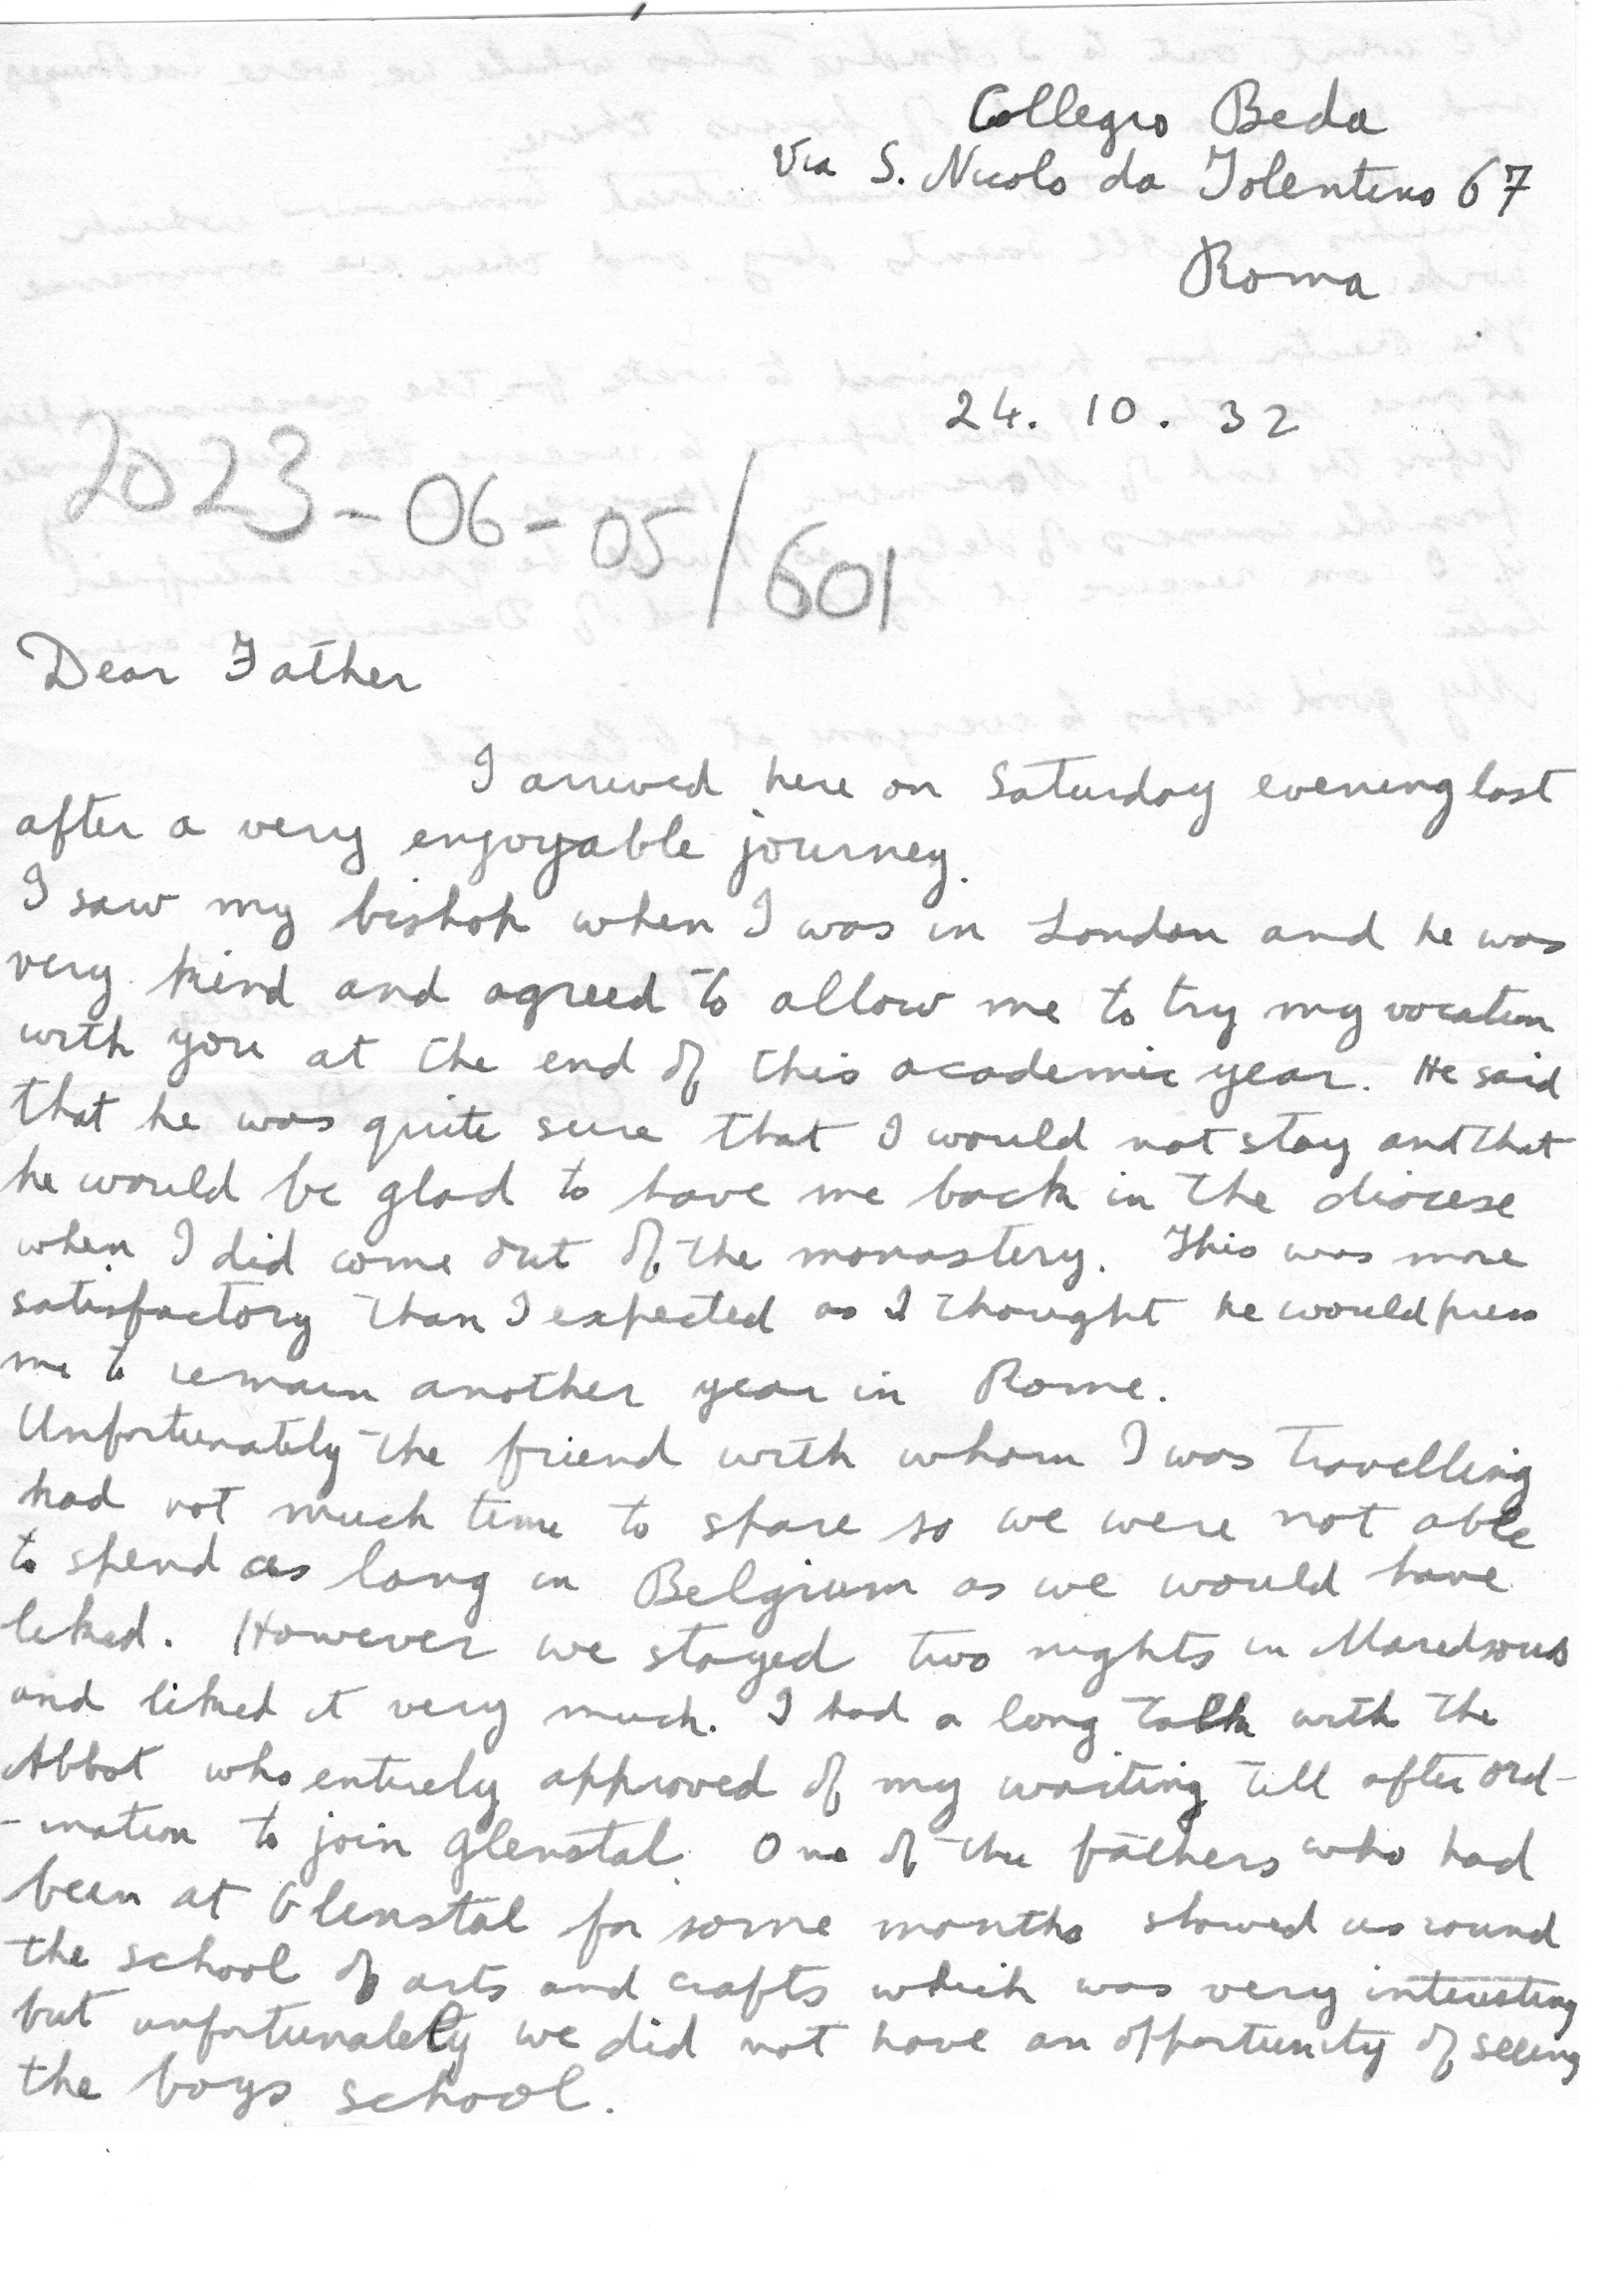 Collegio Beda
Via S. Nicolo da Tolentino 67
Roma
24. 10. 32
2023-06-05/601
Dear Father
I arrived here on Saturday evening last
after a very enjoyable journey.
I saw my bishop when I was in London and he was
very kind and agreed to allow me to try my vocation
with you at the end of this academic year. He said
that he was quite sure that I would not stay and that
he would be glad to have me back in the diocese
when I did come out of the monastery. This was more
satisfactory than I expected as I thought he would press
me to remain another year in Rome.
Unfortunately the friend with whom I was travelling
had not much time to spare so we were not able
to spend as long in Belgium as we would have
liked. However we stayed two nights in Maredsous
and liked it very much. I had a long talk with the
Abbot who entirely approved of my waiting till after ord-
-ination to join Glenstal. One of the fathers who had
been at Glenstal for some months showed us round
the school of arts and crafts which was very interesting
but unfortunately we did not have an opportunity of seeing
the boys school.